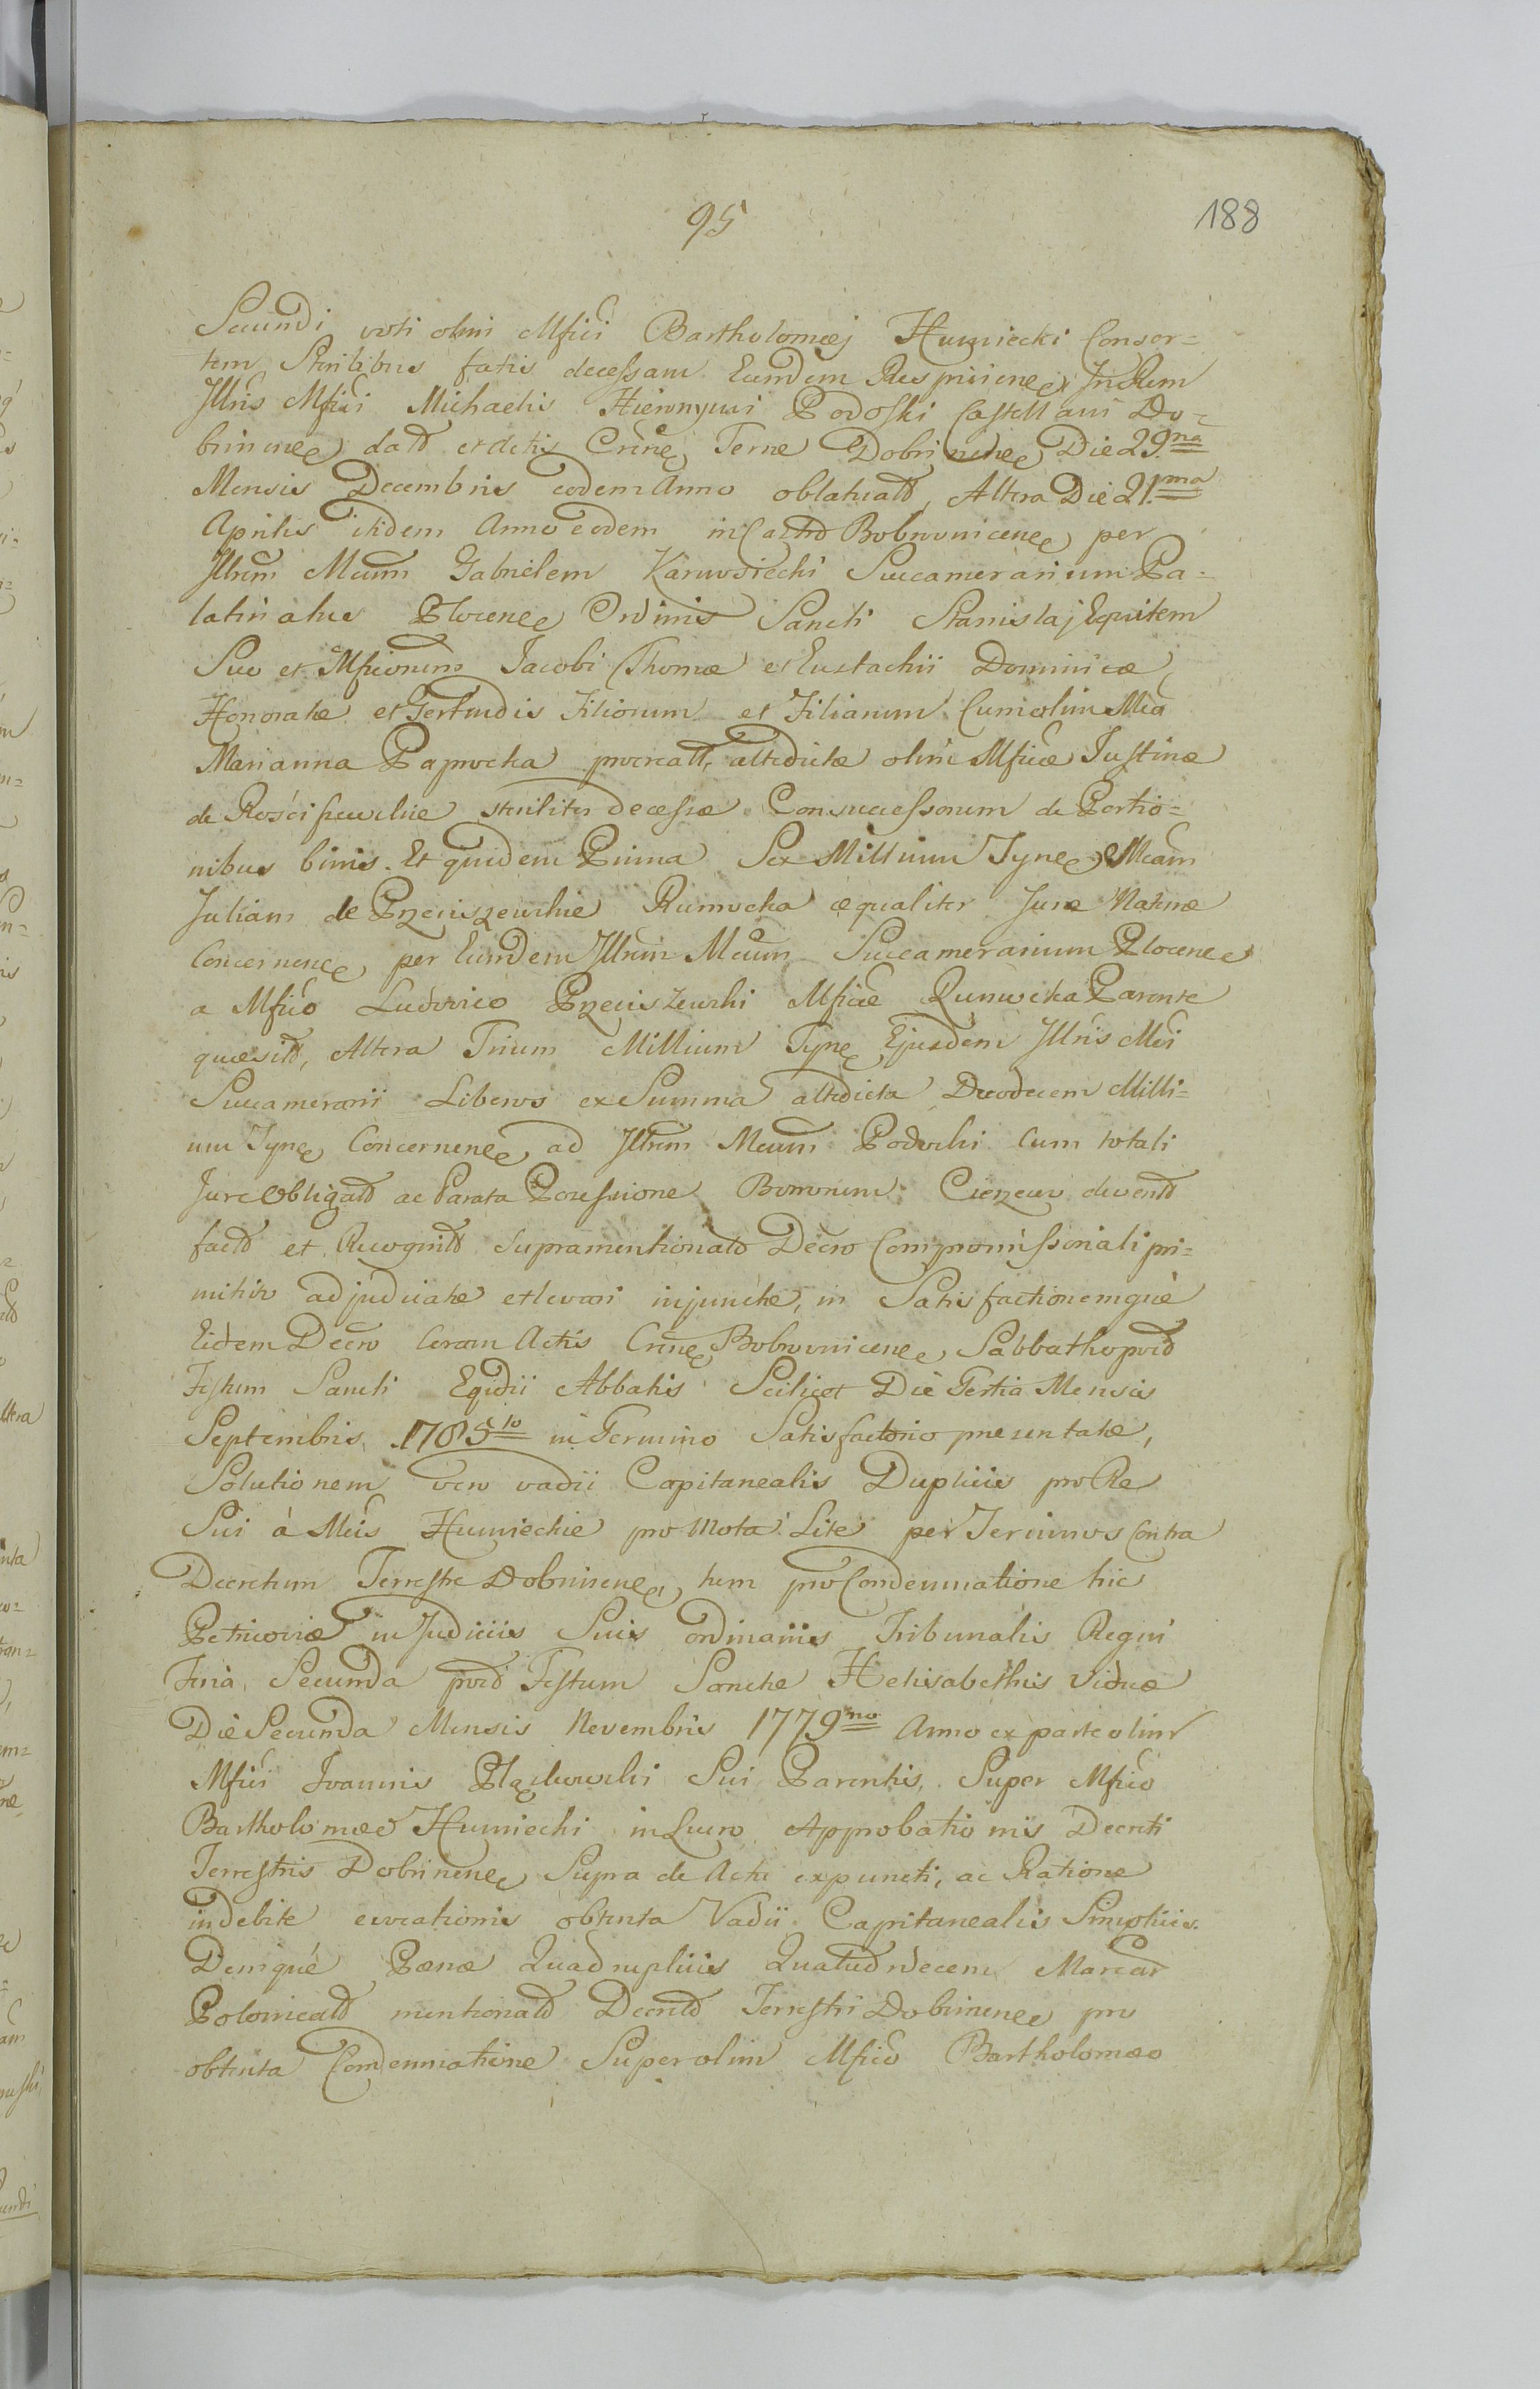 95
188
Secundi voti olim Mfici Bartholomæj Humiecki Consor=
tem Sterilibus fatis decessam Eundem Respiciene, In Rem
Jllris Mfici Michaelis Hieronymi Podoski Castellani Do=
brinene, datt et actis Crine, Terne Dobrinene, Die 29na
Mensis Decembris eodem Anno oblatuatt, Altera Die 21ma
Aprilis itidem Anno eodem in Castro Bobrovnicene, per
Jllrem Mcum Gabrielem Karwosiecki Succamerarium Pa=
latinatus Plocene, Ordinis Sancti Stanislaj Equitem
Suo et Mficorum Jacobi Thomæ et Eustachii Dominicæ,
Honoratæ et Gertrudis Filiorum et Filiarum Cum olim Mca
Marianna Paprocka procreatt, altedictæ olim Mficæ Justinæ
de Rościszewskie steriliter decessæ Consuccessorum de Portio=
nibus binis. Et quidem Prima Sex Millium Fpne, Mcam
Juliam de Przeciszewskie Runocka æqualiter Jure Naturæ
Concernene, per Eundem Jllrem Mcum Succamerarium Plocene,
a Mfico Ludovico Przeciszewski Mficæ Runocka Parente
quæsitt, Altera Trium Millium Fpne, Ejusdem Jllris Mci
Succamerarii Liberos ex Summa altedicta Duodecem Milli=
um Fpne, Concernene, ad Jllrem Mcum Podoski Cum totali
Jure Obligatt ac Parata Possessione Bonorum
factt et Recognitt supramentionatt Decro Compromissionali pri=
mitiv adjudicatæ et levari injunctæ, in Satisfactionemque
Eidem Decro Coram Actis Crine, Bobrovnicene, Sabbatho prid
Festum Sancti Egidii Abbatis Scilicet Die Tertia Mensis
Septembris 1785to in Termino Satisfactorio presentatæ,
Solutionem vero vadii Capitanealis Dupliciis pro Re
Sui à Mcis Humieckie pro Mota Lite per Terminos Contra
Decretum Terrestre Dobrinene, tum pro Condemnatione hic
Petricoviæ in Judiciis Suis ordinariis Tribunalis Regni
Feria Secunda prid Festum Sanctæ Helisabethis Viduæ
Die Secunda Mensis Novembris 1779no Anno ex parte olim
Mfici Joannis Sui Parentis, Super Mfico
Bartholomæo Humiecki in Lucro Approbationis Decreti
Terrestris Dobrinene, Supra de Actu expuncti, ac Ratione
indebite evocationis obtenta Vadii Capitanealis Simpliciis.
Denique Pænæ Quadrupliciis Quatuordecem Marcar
Polonicatt mentionatt Decrett Terrestri Dobrinene, pro
obtenta Condemnatione Super olim Mfico Bartholomæo